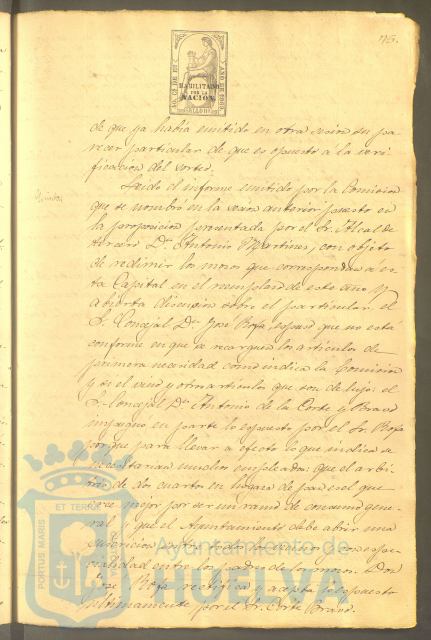 75.
HABILITADO
POR LA
NACION.
de que ya habia emitido en otra sesion su pa
recer particular de que es opuesto a la veri
ficacion del sorteo.
Leido el informe emitido por la Comision
que se nombró en la sesion anterior puesto en
la proposicion presentada por el Sr. Alcal de
tercero Dn. Antonio Martinez, con objeto
de redimir los mozos que correspondan á es
ta Capital en el reemplazo de este año y
abierta discusion sobre el particular, el
Sr. Concejal Dn. José Rofa, espuso que no esta
conforme en que se recarguen los articulos de
primera necesidad como indica la Comision
y si el y otros articulos que son de lujo: el
Sr. Concejal Dn. Antonio de la Corte y Bravo
impugno en parte lo espuesto por el Sr. Rofa
porque para llevar a efecto lo que indica se
necesitarian muchos empleados: que el arbi
trio de dos cuartos en hogaza de pan es el que
cree mejor por ser un ramo de consumo gene
ral: que el Ayuntamiento debe abrir una
suscricion entre todos los vecinos y con espe
cialidad entre los padres de los mozos. Don
José Rofa rectifica y acepta lo espuesto
ultimamente por el Sr. Corte Bravo.
PORTUS MARIS ET TERRAE
Ayuntamiento de
HUELVA